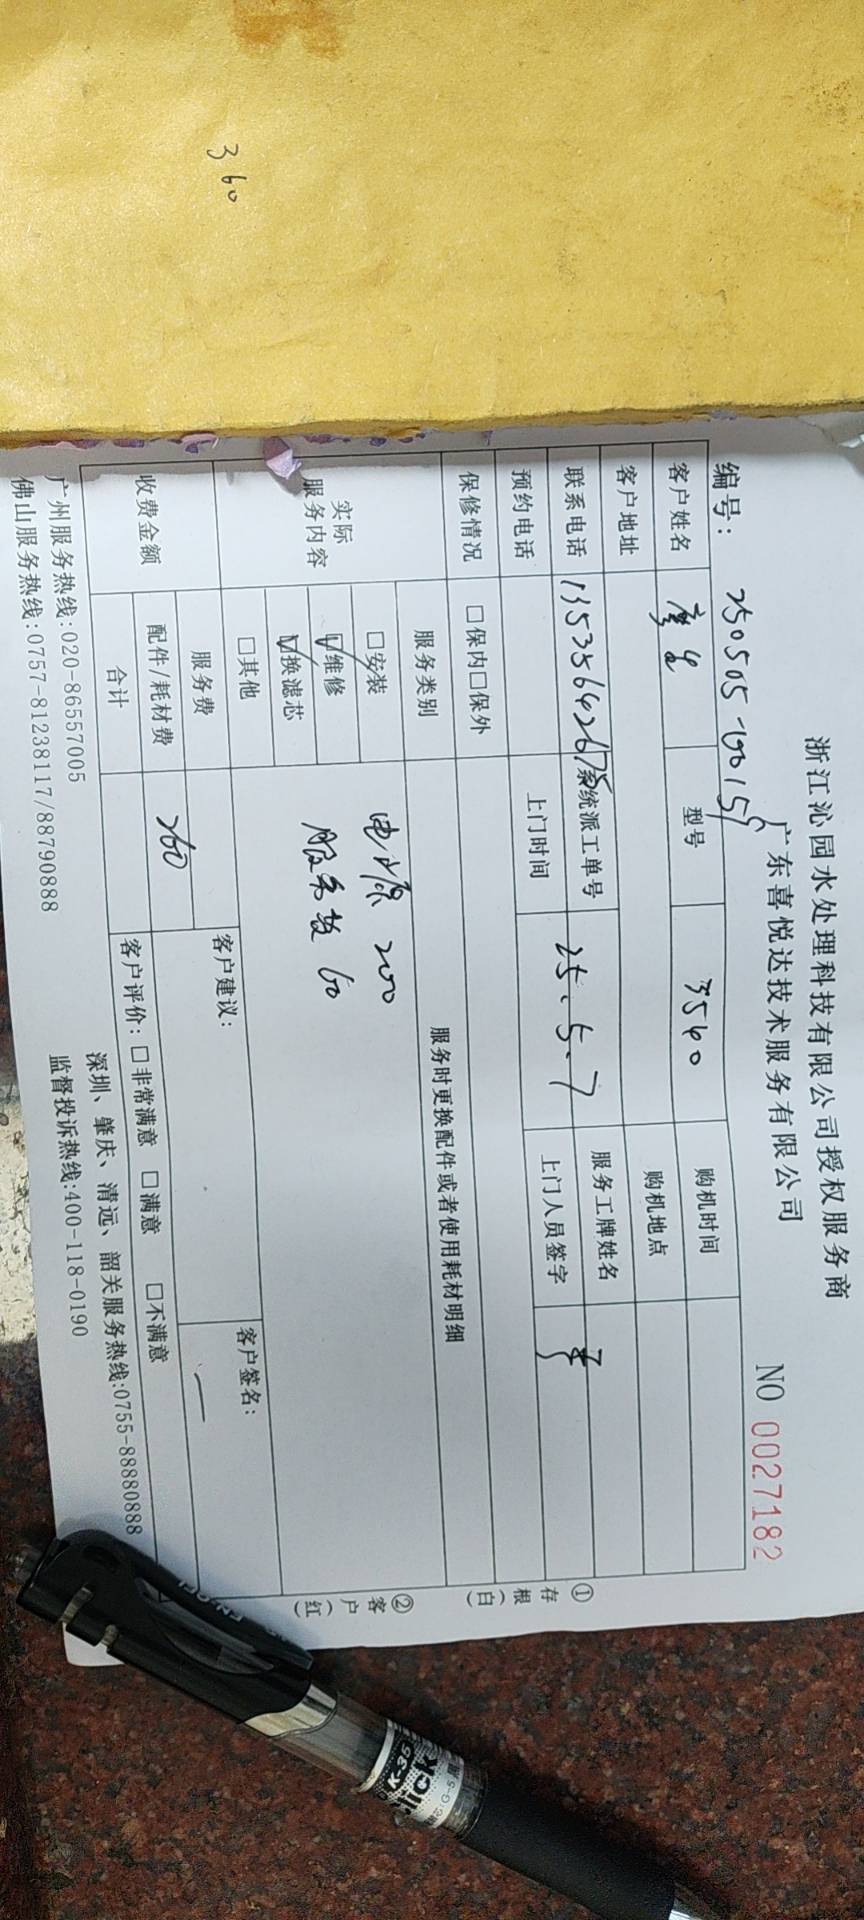 360
浙江沁园水处理科技有限公司授权服务商
广东喜悦达技术服务有限公司
NO 0027182
编号:
客户姓名 型号 3540 购机时间
客户地址 购机地点
联系电话 系统派工单号 服务工牌姓名
预约电话 上门时间 25.5.7 上门人员签字
保修情况 □保内□保外
实际服务内容 服务类别 服务时更换配件或者使用耗材明细
□安装 电源 200
☑维修 服务费 60
☑换滤芯
□其他
收费金额 服务费 客户建议: 客户签名:
配件/耗材费 260
合计 客户评价: □非常满意 □满意 □不满意
广州服务热线:020-86557005 深圳、肇庆、清远、韶关服务热线:0755-88880888
佛山服务热线:0757-81238117/88790888 监督投诉热线:400-118-0190
①存根(白)
②客户(红)
K-35
Click